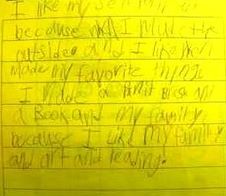 I like my
because I like
outside and I like
made my favorite things
I made a Paint Brush and
a Book and my family
because I like my family
and art and reading.